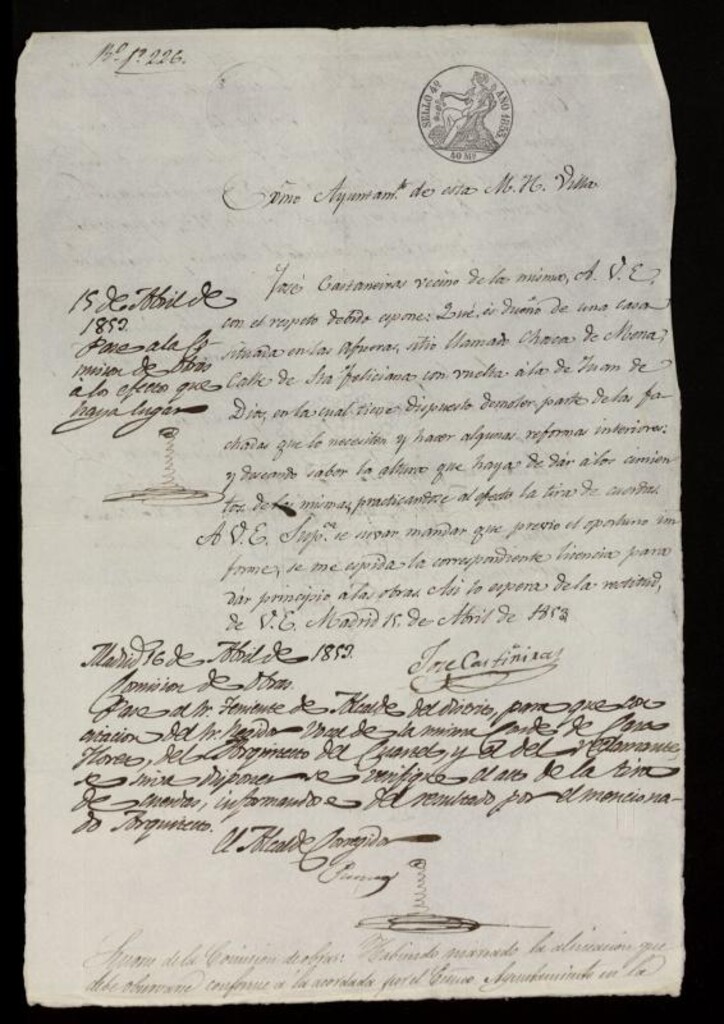 Bº 1º 226.
SELLO 4º AÑO 1853.
40 Mˢ
Exmo Ayuntamᵗᵒ de esta M. H. Villa
José Castañeiras vecino de la misma, A. V. E.
con el respeto debido espone: Qué, es dueño de una casa
situada en las afueras, sitio llamado Chaca de Mena,
Calle de Sta Feliciana con vuelta á la de Juan de
Dios, en la cual tiene dispuesto demoler parte de las fa-
chadas que lo necesiten y hacer algunas reformas interiores:
y deseando saber la altura que haya de dár á los cimien-
tos de las mismas, practicandose al efecto la tira de cuerdas
A V. E. Supᶜᵃ se sirva mandar que previo el oportuno in
forme, se me espida la correspondiente licencia para
dár principio á las obras. Asi lo espera de la rectitud,
de V. E. Madrid 15, de Abril de 1853
José Castiñeiras
15 de Abril de
1853.
Pase a la Co-
mision de Obras
á los efectos que
haya lugar
Madrid 16 de Abril de 1853.
Comision de Obras.
Pase al Sr. Teniente de Alcalde del distrito, para que con
citacion del Sr. Regidor Vocal de la misma Conde de Casa
Flores, del Arquitecto del Cuartel y el del reclamante
se sirva disponer se verifique el acto de la tira
de cuerdas, informandose del resultado por el menciona-
do Arquitecto.
El Alcalde Corregidor
de la Comision de obras: Habiendo marcado la alineacion que
debe observarse conforme á la acordada por el Excmo Ayuntamiento en la